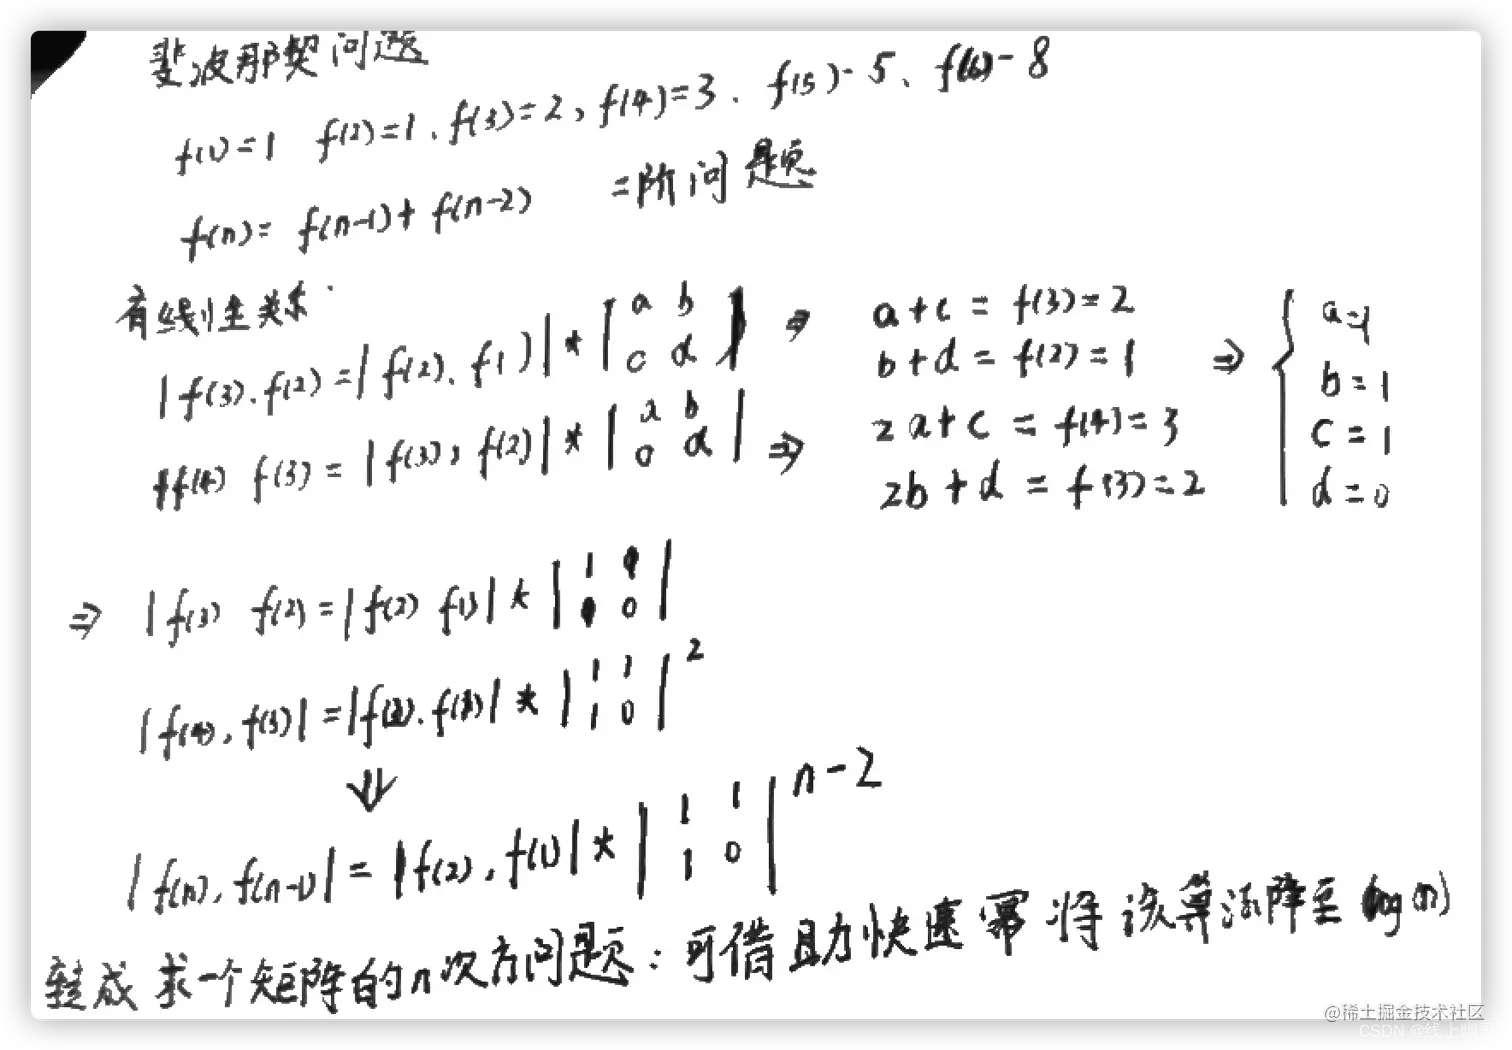 斐波那契问题
f(1)=1 f(2)=1、f(3)=2, f(4)=3、f(5)-5、f(6)-8
f(n)= f(n-1)+ f(n-2) 二阶问题
有线性关系
|f(3).f(2) =|f(2).f1)|*|a b| ⇒ a+c = f(3)=2
|c d| b+d = f(2)=1 ⇒ { a=1
f(4) f(3) = |f(3), f(2)|*|a b| ⇒ 2a+c = f(4)=3 b=1
|c d| 2b+d = f(3)=2 c=1
d=0
⇒ |f(3) f(2) =|f(2) f(1)|*|1 1|
|1 0|
|f(4), f(3)|=|f(2).f(1)|*|1 1|²
|1 0|
⇓
|f(n), f(n-1)|=|f(2), f(1)|*|1 1|ⁿ⁻²
|1 0|
转成求一个矩阵的n次方问题:可借助快速幂将该算法降至log(n)
@稀土掘金技术社区
CSDN @线上幽